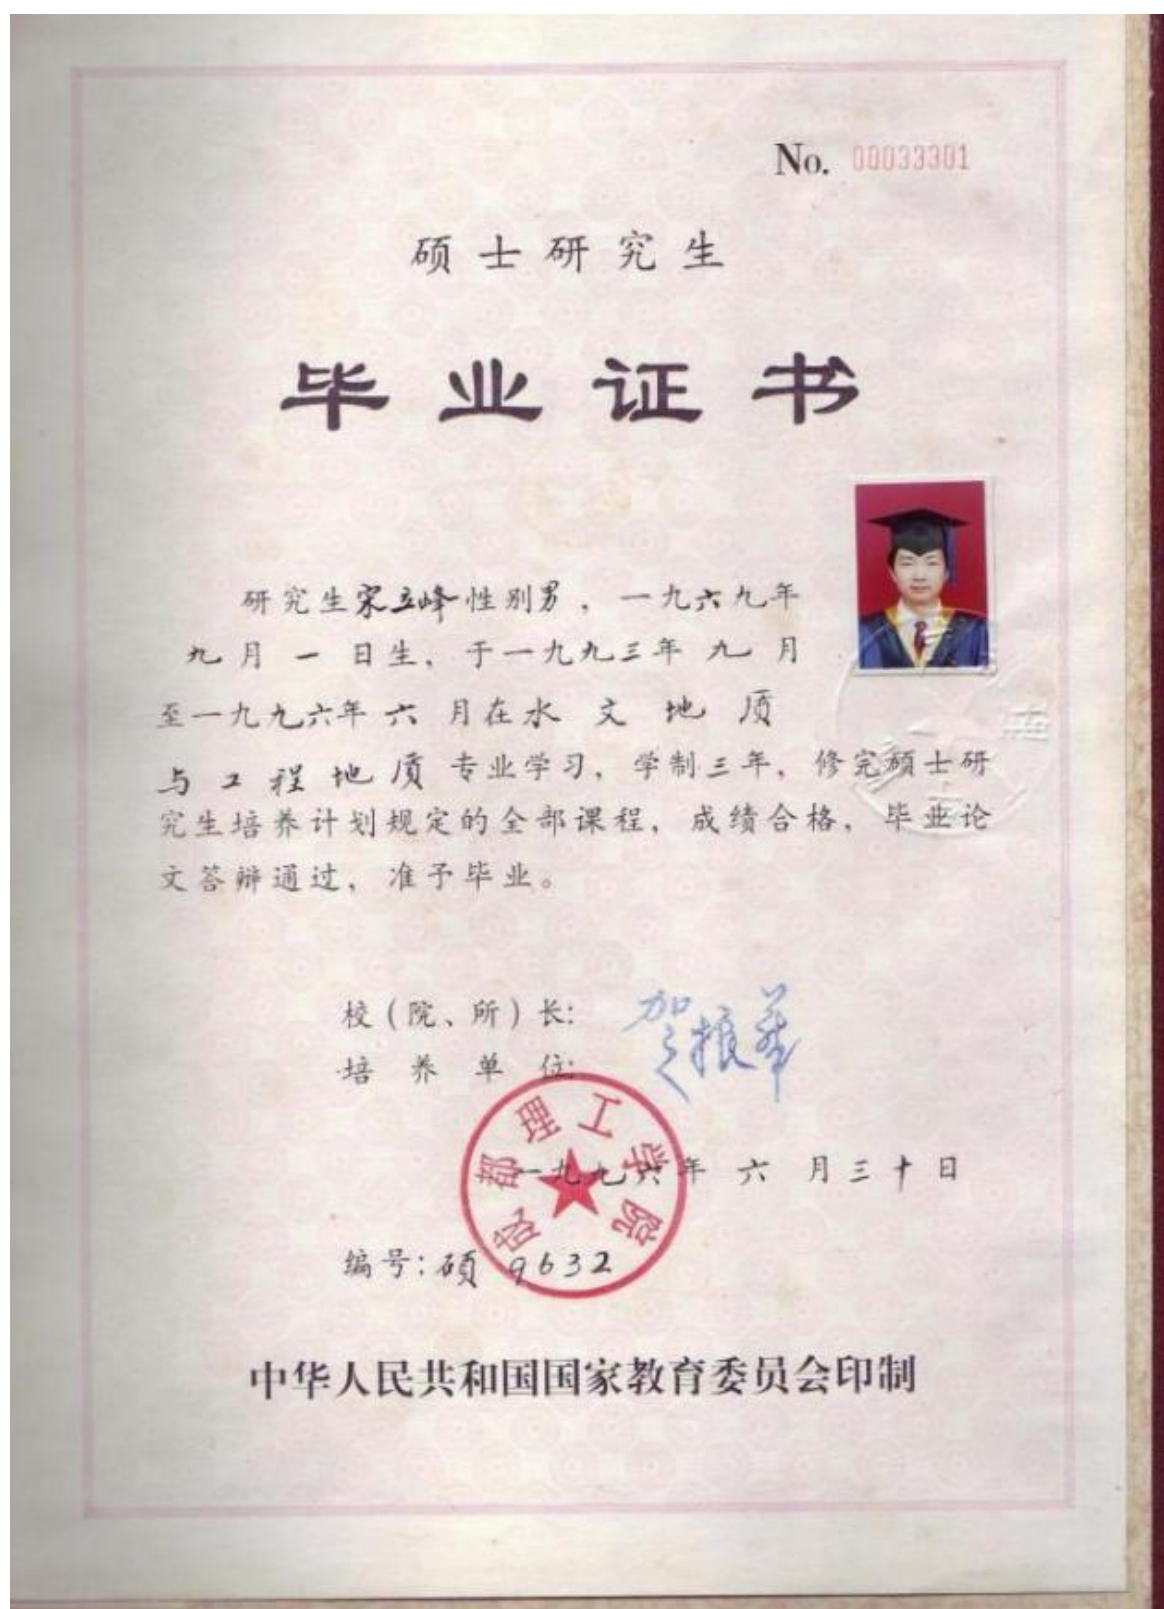 No. 00033301
硕士研究生
毕业证书
研究生宋立峰性别男，一九六九年
九月一日生，于一九九三年九月
至一九九六年六月在水文地质
与工程地质专业学习，学制三年，修完硕士研
究生培养计划规定的全部课程，成绩合格，毕业论
文答辩通过，准予毕业。
校(院、所)长：贺振华
培养单位：
成都理工学院
一九九六年六月三十日
编号：硕9632
中华人民共和国国家教育委员会印制